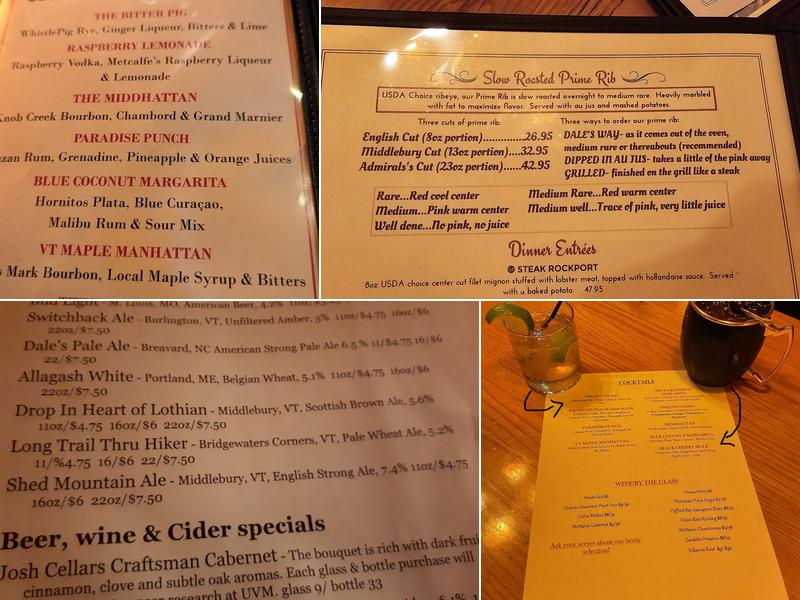 THE BITTER PIG
WhistlePig Rye, Ginger Liqueur, Bitters & Lime
RASPBERRY LEMONADE
Raspberry Vodka, Metcalfe's Raspberry Liqueur
& Lemonade
THE MIDDHATTAN
Knob Creek Bourbon, Chambord & Grand Marnier
PARADISE PUNCH
Rum, Grenadine, Pineapple & Orange Juices
BLUE COCONUT MARGARITA
Hornitos Plata, Blue Curaçao,
Malibu Rum & Sour Mix
VT MAPLE MANHATTAN
Mark Bourbon, Local Maple Syrup & Bitters
Slow Roasted Prime Rib
USDA Choice ribeye, our Prime Rib is slow roasted overnight to medium rare. Heavily marbled
with fat to maximize flavor. Served with au jus and mashed potatoes.
Three cuts of prime rib:
English Cut (8oz portion).............26.95
Middlebury Cut (13oz portion)....32.95
Admiral's Cut (23oz portion)......42.95
Three ways to order our prime rib:
DALE'S WAY- as it comes out of the oven,
medium rare or thereabouts (recommended)
DIPPED IN AU JUS- takes a little of the pink away
GRILLED- finished on the grill like a steak
Rare...Red cool center
Medium...Pink warm center
Well done...No pink, no juice
Medium Rare...Red warm center
Medium well...Trace of pink, very little juice
Dinner Entrées
STEAK ROCKPORT
8oz USDA choice center cut filet mignon stuffed with lobster meat, topped with hollandaise sauce. Served
with a baked potato. 47.95
Bud Light - St. Louis, MO, American Beer, 4.2%
Switchback Ale - Burlington, VT, Unfiltered Amber, 5% 11oz/$4.75 16oz/$6
22oz/$7.50
Dale's Pale Ale - Breavard, NC American Strong Pale Ale 6.5 % 11/$4.75 16/$6
22/$7.50
Allagash White - Portland, ME, Belgian Wheat, 5.1% 11oz/$4.75 16oz/$6
22oz/$7.50
Drop In Heart of Lothian - Middlebury, VT, Scottish Brown Ale, 5.6%
11oz/$4.75 16oz/$6 22oz/$7.50
Long Trail Thru Hiker - Bridgewaters Corners, VT, Pale Wheat Ale, 5.2%
11/%4.75 16/$6 22/$7.50
Shed Mountain Ale - Middlebury, VT, English Strong Ale, 7.4% 11oz/$4.75
16oz/$6 22oz/$7.50
Beer, wine & Cider specials
Josh Cellars Craftsman Cabernet - The bouquet is rich with dark
cinnamon, clove and subtle oak aromas. Each glass & bottle purchase will
research at UVM. glass 9/ bottle 33
COCKTAILS
THE BITTER PIG
RASPBERRY PEACH LEMONADE
PARADISE PUNCH
VT MAPLE MANHATTAN
MIDDHATTAN
BLUE COCONUT MARGARITA
BLACK CHERRY MULE
WINE BY THE GLASS
House Red $6
House White $6
Ask your server about our bottle
selection!